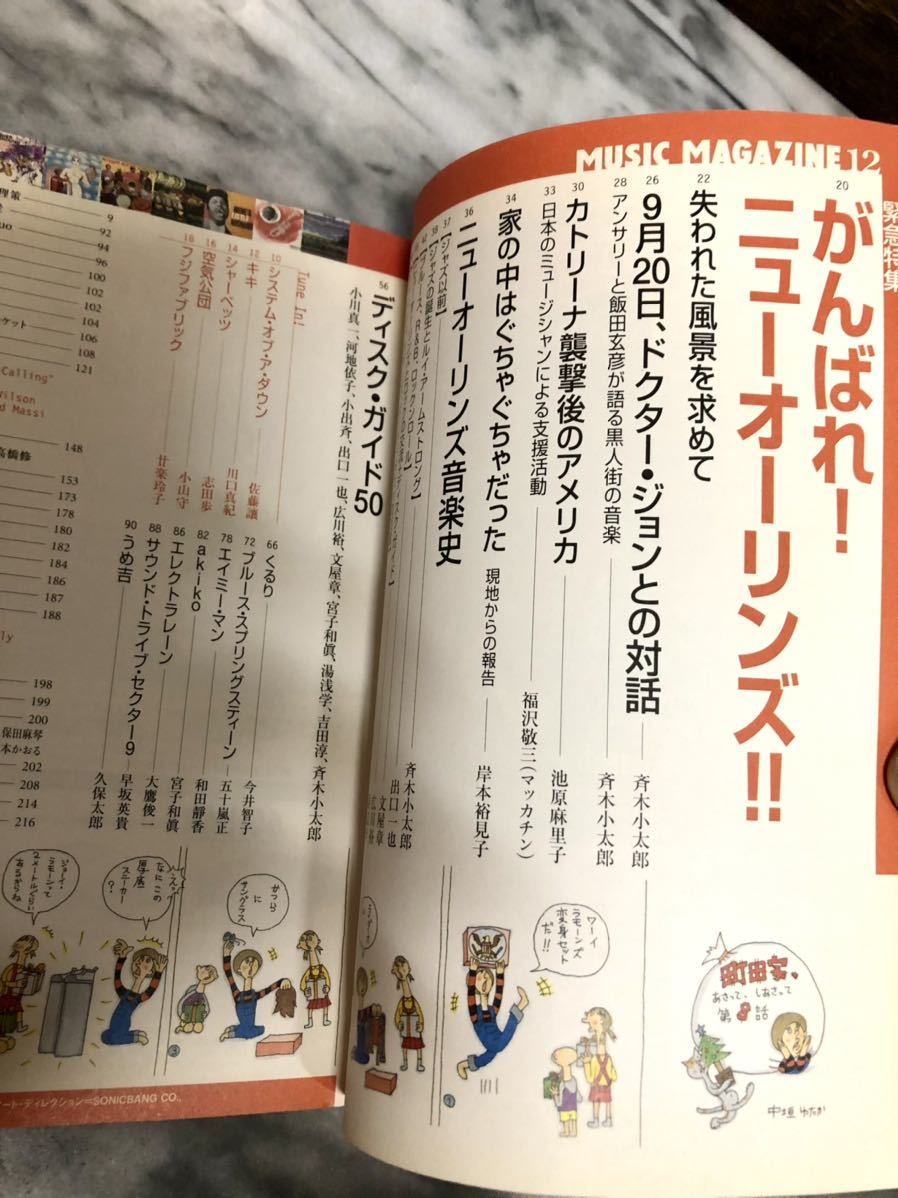 MUSIC MAGAZINE 12
緊急特集
20
がんばれ!
ニューオーリンズ!!
22
失われた風景を求めて
26
9月20日、ドクター・ジョンとの対話
斉木小太郎
28
アンサリーと飯田玄彦が語る黒人街の音楽
斉木小太郎
30
カトリーナ襲撃後のアメリカ
池原麻里子
33
日本のミュージシャンによる支援活動
福沢敬三(マッカチン)
34
家の中はぐちゃぐちゃだった
現地からの報告
岸本裕見子
36
ニューオーリンズ音楽史
37
【ジャズ以前】
斉木小太郎
38
【ジャズの誕生とルイ・アームストロング】
出口一也
42
【ブルース、R&B、ロックンロール】
文屋章
56
ディスク・ガイド50
小川真一、河地依子、小出斉、出口一也、広川裕、文屋章、宮子和眞、湯浅学、吉田淳、斉木小太郎
Tune In!
10
システム・オブ・ア・ダウン
佐藤譲
12
キキ
川口真紀
14
シャーベッツ
志田歩
16
空気公団
小山守
18
フジファブリック
甘楽玲子
66
くるり
今井智子
72
ブルース・スプリングスティーン
五十嵐正
78
エイミー・マン
和田靜香
82
akiko
宮子和眞
86
エレクトラレーン
大鷹俊一
88
サウンド・トライブ・セクター9
早坂英貴
90
うめ吉
久保太郎
理策
9
92
94
96
100
102
ケット
104
106
108
121
Calling"
Wilson
d Massi
148
高橋修
153
173
178
180
182
184
186
187
188
198
199
200
保田麻琴
本かおる
202
208
214
216
町田家、
あさって、しあさって
第8話
中垣ゆたか
ワーイ
ラモーンズ
変身セット
だ!!
かつら
に
サングラス
なにこの
厚底
スニーカー
?
ジョーイ・
ラモーンって
2メートルぐらい
あるからね
アート・ディレクション=SONICBANG CO.,